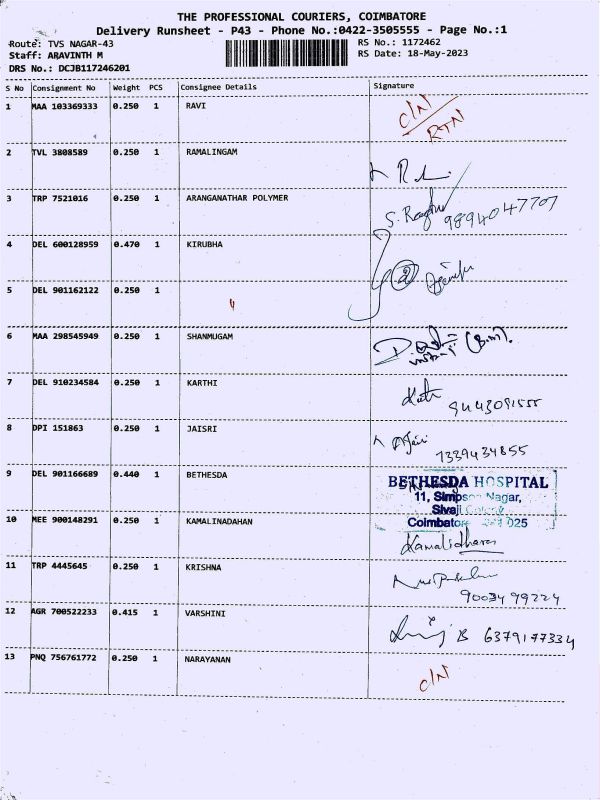 THE PROFESSIONAL COURIERS, COIMBATORE
Delivery Runsheet - P43 - Phone No.:0422-3505555 - Page No.:1
Route: TVS NAGAR-43 RS No.: 1172462
Staff: ARAVINTH M RS Date: 18-May-2023
DRS No.: DCJB117246201
S No Consignment No Weight PCS Consignee Details Signature
1 MAA 103369333 0.250 1 RAVI C/N
RTN
2 TVL 3808589 0.250 1 RAMALINGAM
3 TRP 7521016 0.250 1 ARANGANATHAR POLYMER 9894047707
4 DEL 600128959 0.470 1 KIRUBHA
5 DEL 901162122 0.250 1
6 MAA 298545949 0.250 1 SHANMUGAM
7 DEL 910234584 0.250 1 KARTHI 9443091555
8 DPI 151863 0.250 1 JAISRI 7339434855
9 DEL 901166689 0.440 1 BETHESDA BETHESDA HOSPITAL
11, Simpson Nagar,
Sivaji
Coimbatore 025
10 MEE 900148291 0.250 1 KAMALINADAHAN Kamalidharan
11 TRP 4445645 0.250 1 KRISHNA
12 AGR 700522233 0.415 1 VARSHINI 6379177334
13 PNQ 756761772 0.250 1 NARAYANAN C/N